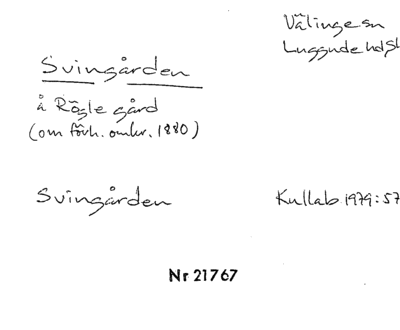 Välinge sn
Luggude hd Sk
Svingården
å Rögle gård
(om förh. omkr. 1880)
Svingården
Kullab 1979:57
Nr 21767